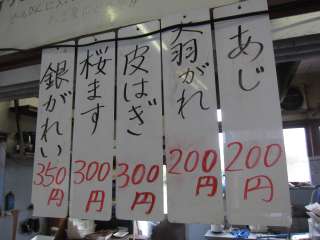 あじ
200円
大羽がれ
200円
皮はぎ
300円
桜ます
300円
銀がれい
350円